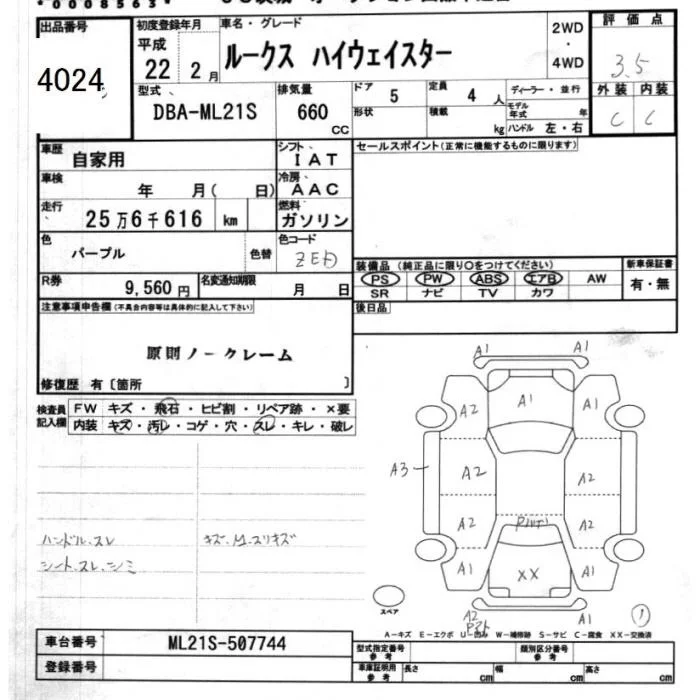 *0008563*
出品番号 初度登録年月 車名・グレード 2WD・4WD 評価点
4024 平成 22 2月 ルークス ハイウェイスター 3.5
型式 排気量 ドア 5 定員 4人 ディーラー・並行 外装 内装
DBA-ML21S 660 CC 形状 積載 kg モデル年式 年 ハンドル 左・右 C C
車歴 自家用 シフト IAT セールスポイント(正常に機能するものに限ります)
車検 年 月( 日) 冷房 AAC
走行 25万6千616 km 燃料 ガソリン
色 パープル 色替 色コード
装備品 (純正品に限り〇をつけてください) 新車保証書
PS PW ABS エアB AW 有・無
SR ナビ TV カワ
R券 9,560円 名変通知期限 月 日
後日品
注意事項申告欄(不具合内容等は具体的に記入して下さい)
原則ノークレーム
修復歴 有〔箇所 〕
検査員記入欄 FW キズ・飛石・ヒビ割・リペア跡・×要
内装 キズ・汚レ・コゲ・穴・スレ・キレ・破レ
ハンドル.スレ
シート.スレ.シミ
A1 A1
A2 A1 A1
A3 A2 A2
A2 A2
A1 XX A1
A2 A1
スペア
①
A-キズ E-エクボ U-凹み W-補修跡 S-サビ C-腐食 XX-交換済
車台番号 ML21S-507744
登録番号
型式指定番号 参考 類別区分番号 参考
車庫証明用 参考 長さ cm 幅 cm 高さ cm